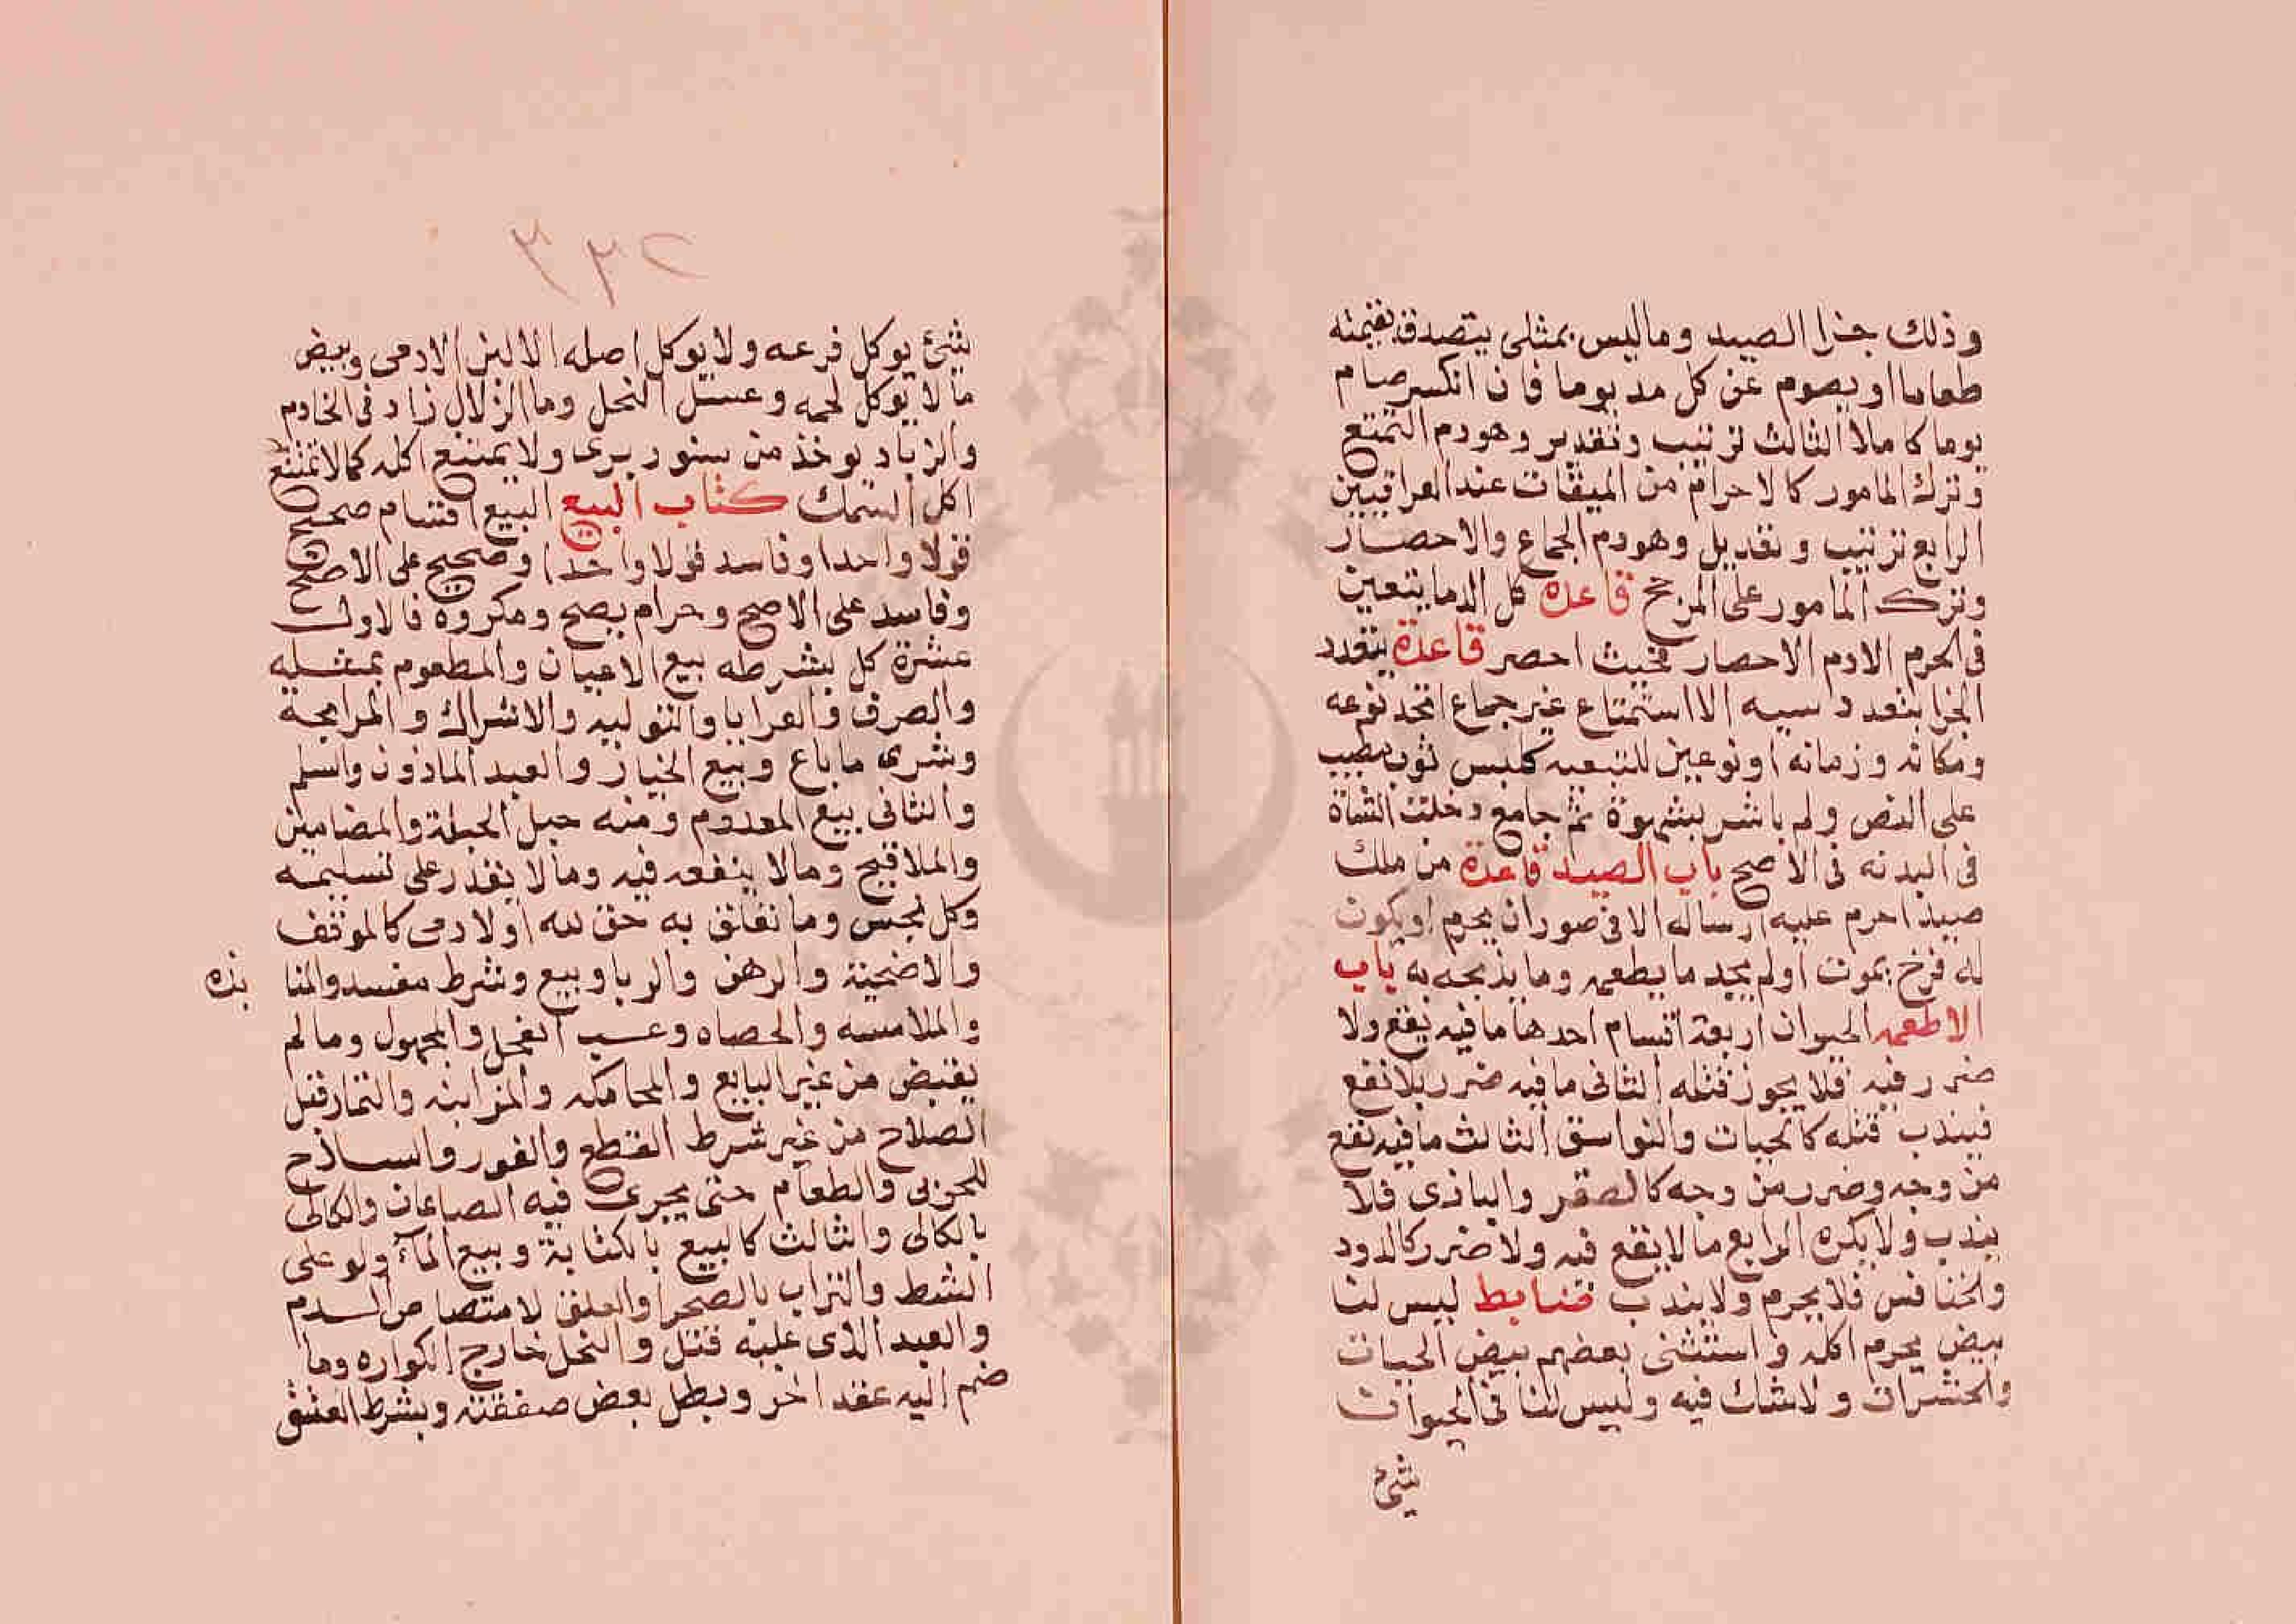 وذلك جزا الصيد وماليس بمثلى يتصدق بقيمته
طعاما او يصوم عن كل مد يوما فان انكسر صام
يوما كاملا الثالث ترتيب وتقدير وهو دم التمتع
وترك المامور كالاحرام من الميقات عند العراقيين
الرابع ترتيب وتعديل وهو دم الجماع والاحصار
وترك المامور على المرجح قاعده كل الدما يتعين
فى الحرم الادم الاحصار فحيث احصر قاعدة يتعدد
الجزا بتعدد سببه الا استمتاع غير جماع اتحد نوعه
ومكانه وزمانه او نوعين للتبعيه كلبس ثوب مطيب
على النص ولو باشر بشهوة ثم جامع دخلت الشاة
فى البدنه فى الاصح باب الصيد قاعدة من ملك
صيدا احرم عليه ارساله الا فى صور ان يحرم او يكون
له فرخ يموت او لم يجد ما يطعمه وما يذبحه به باب
الاطعمه الحيوان اربعة اقسام احدها ما فيه نفع ولا
ضرر فيه فلا يجوز قتله الثانى ما فيه ضرر بلا نفع
فيندب قتله كالحيات والفواسق الثالث ما فيه نفع
من وجه وضرر من وجه كالصقر والبازى فلا
يندب ولا يكره الرابع ما لا نفع فيه ولا ضرر كالدود
والخنافس فلا يحرم ولا يندب ضابط ليس لنا
بيض يحرم اكله واستثنى بعضهم بيض الحيات
والحشرات ولا شك فيه وليس لنا فى الحيوان
شىء
٢٣٣
شئ يوكل فرعه ولا يوكل اصله الا لبن الادمى وبيض
ما لا يوكل لحمه وعسل النحل وما الزلال زاد فى الخادم
والزباد يوخذ من سنور برى ولا يمتنع اكله كما لا يمتنع
اكل السمك كتاب البيع البيع اقسام صحيح
قولا واحدا وفاسد قولا واحدا وصحيح على الاصح
وفاسد على الاصح وحرام يصح ومكروه فالاول
عشرة كل بشرطه بيع الاعيان والمطعوم بمثله
والصرف والعرايا والتوليه والاشراك والمرابحة
وشرى ما باع وبيع الخيار والعبد الماذون والسلم
والثانى بيع المعدوم ومنه حبل الحبلة والمضامين
والملاقيح وما لا ينفعه فيه وما لا يقدر على تسليمه
وكل نجس وما تعلق به حق لله او لادمى كالموقف
والاضحية والرهن والربا وبيع وشرط مفسد والمنا بذه
والملامسه والحصاه وعسب الفحل والمجهول وما لم
يقبض من غير البايع والمحاقله والمزابنه والثمار قبل
الصلاح من غير شرط القطع والغرر والسلاح
للحربى والطعام حتى يجرى فيه الصاعان والكالى
بالكالى والثالث كالبيع بالكتابة وبيع الماء ولو على
الشط والتراب بالصحرا والعلق لامتصاص الدم
والعبد الذى عليه قتل والنحل خارج الكواره وما
ضم اليه عقد اخر وبطل بعض صفقته وبشرط العتق